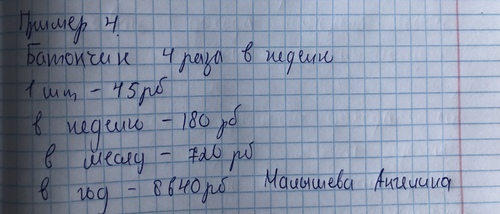 Пример 4.
Батончик 4 раза в неделю
1 шт - 45 рб
в неделю - 180 рб
в месяц - 720 рб
в год - 8640 рб Малышева Ангелина